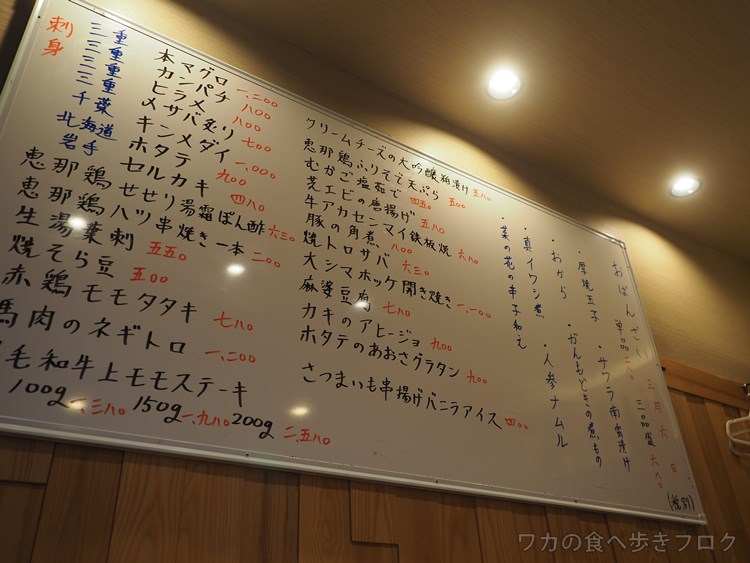 刺身
三重 本マグロ 一、二〇〇
三重 カンパチ 八〇〇
三重 ヒラメ 八〇〇
千葉 メサバ炙り 七〇〇
キンメダイ 一、〇〇〇
北海道 ホタテ 九〇〇
岩手 セルカキ 四八〇
恵那鶏せせり湯霜ぽん酢 六三〇
恵那鶏ハツ串焼き一本 二〇〇
生湯葉刺 五五〇
焼そら豆 五〇〇
赤鶏モモタタキ 七八〇
馬肉のネギトロ 一、二〇〇
毛和牛上モモステーキ
100g 一、三八〇 150g 一、九八〇 200g 二、五八〇
クリームチーズの大吟醸粕漬け 五八〇
恵那鶏ふりそで天ぷら 五〇〇
むかご塩茹で 四五〇
芝エビの唐揚げ 五八〇
牛アカセンマイ鉄板焼 六八〇
豚の角煮 八〇〇
焼トロサバ 六三〇
大シマホッケ開き焼き 一、一〇〇
麻婆豆腐 七八〇
カキのアヒージョ 九〇〇
ホタテのあおさグラタン 九〇〇
さつまいも串揚げバニラアイス 四〇〇
三月六日
おばんざい 単品 三点盛 六八〇
・厚焼玉子 ・サワラ南蛮漬け
・おから ・がんもどきの煮もの
・真イワシ煮 ・人参ナムル
・菜の花の辛子和え
(税別)
ワカの食べ歩きブログ